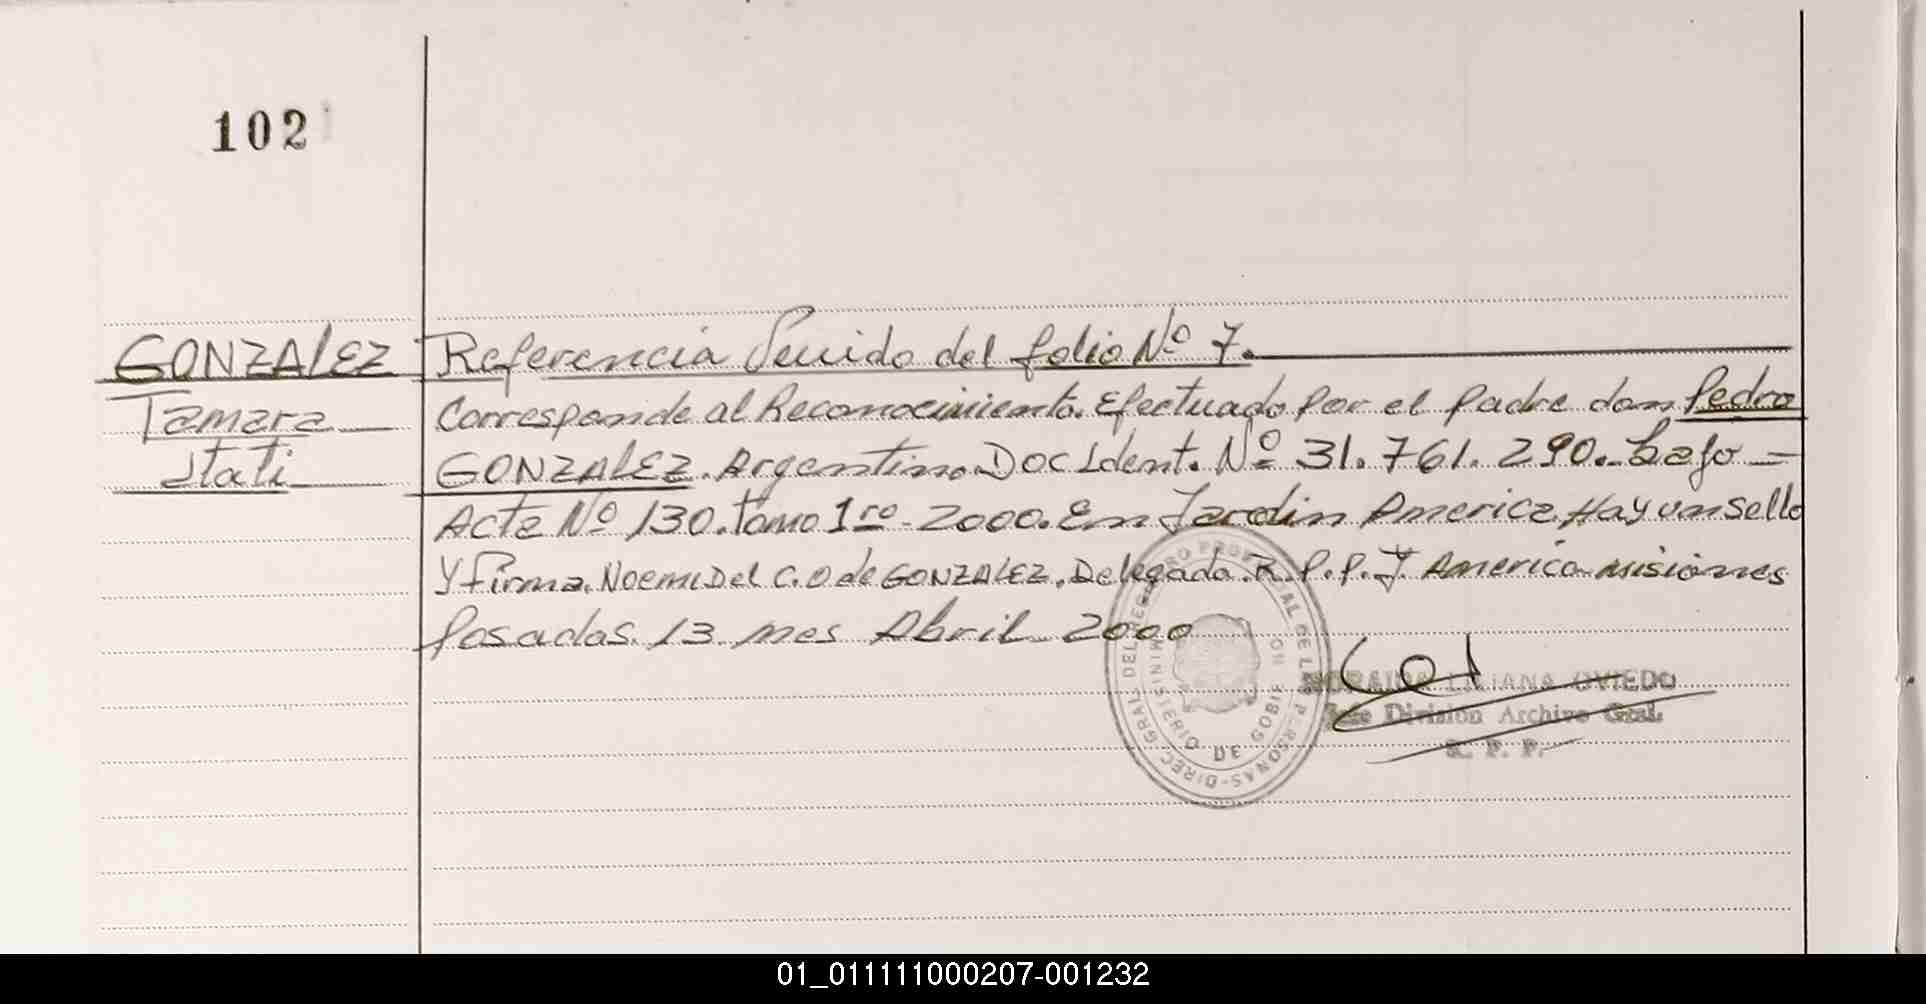 102
GONZALEZ
Tamara
Itati
Referencia Venido del folio Nº 7.
Corresponde al Reconocimiento. Efectuado Por el Padre don Pedro
GONZALEZ. Argentino. Doc Ident. Nº 31.761.290. bajo -
Acta Nº 130. tomo 1ro - 2000. En Jardin America. Hay un sello
y firma. Noemi Del C. O de GONZALEZ. Delegada. R. P. P. J. America misiones
Posadas. 13 mes Abril 2000
DIREC. GRAL. DEL REGISTRO PROVINCIAL DE LAS PERSONAS
MINISTERIO DE GOBIERNO
LILIANA OVIEDO
Jefe División Archivo Gral.
R. P. P.
01_011111000207-001232